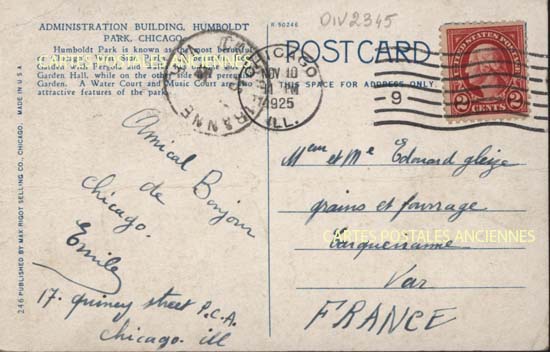 ADMINISTRATION BUILDING, HUMBOLDT
PARK, CHICAGO.
Humboldt Park is known as the most beautiful
Garden Hall, while on the other side a perennial
Garden. A Water Court and Music Court are also
attractive features of the park.
R-50246
OIV2345
POST CARD
THIS SPACE FOR ADDRESS ONLY.
CHICAGO
NOV 10
1925
ILL.
9
UNITED STATES POSTAGE
2 CENTS 2
CARTES POSTALES ANCIENNES
Amical Bonjour
de
Chicago.
Emile
17. quincy street P.C.A.
Chicago. ill
Mem et Me Edouard gleize
grains et fourrage
Carqueiranne
CARTES POSTALES ANCIENNES
Var
FRANCE
246 PUBLISHED BY MAX RIGOT SELLING CO., CHICAGO. MADE IN U.S.A.